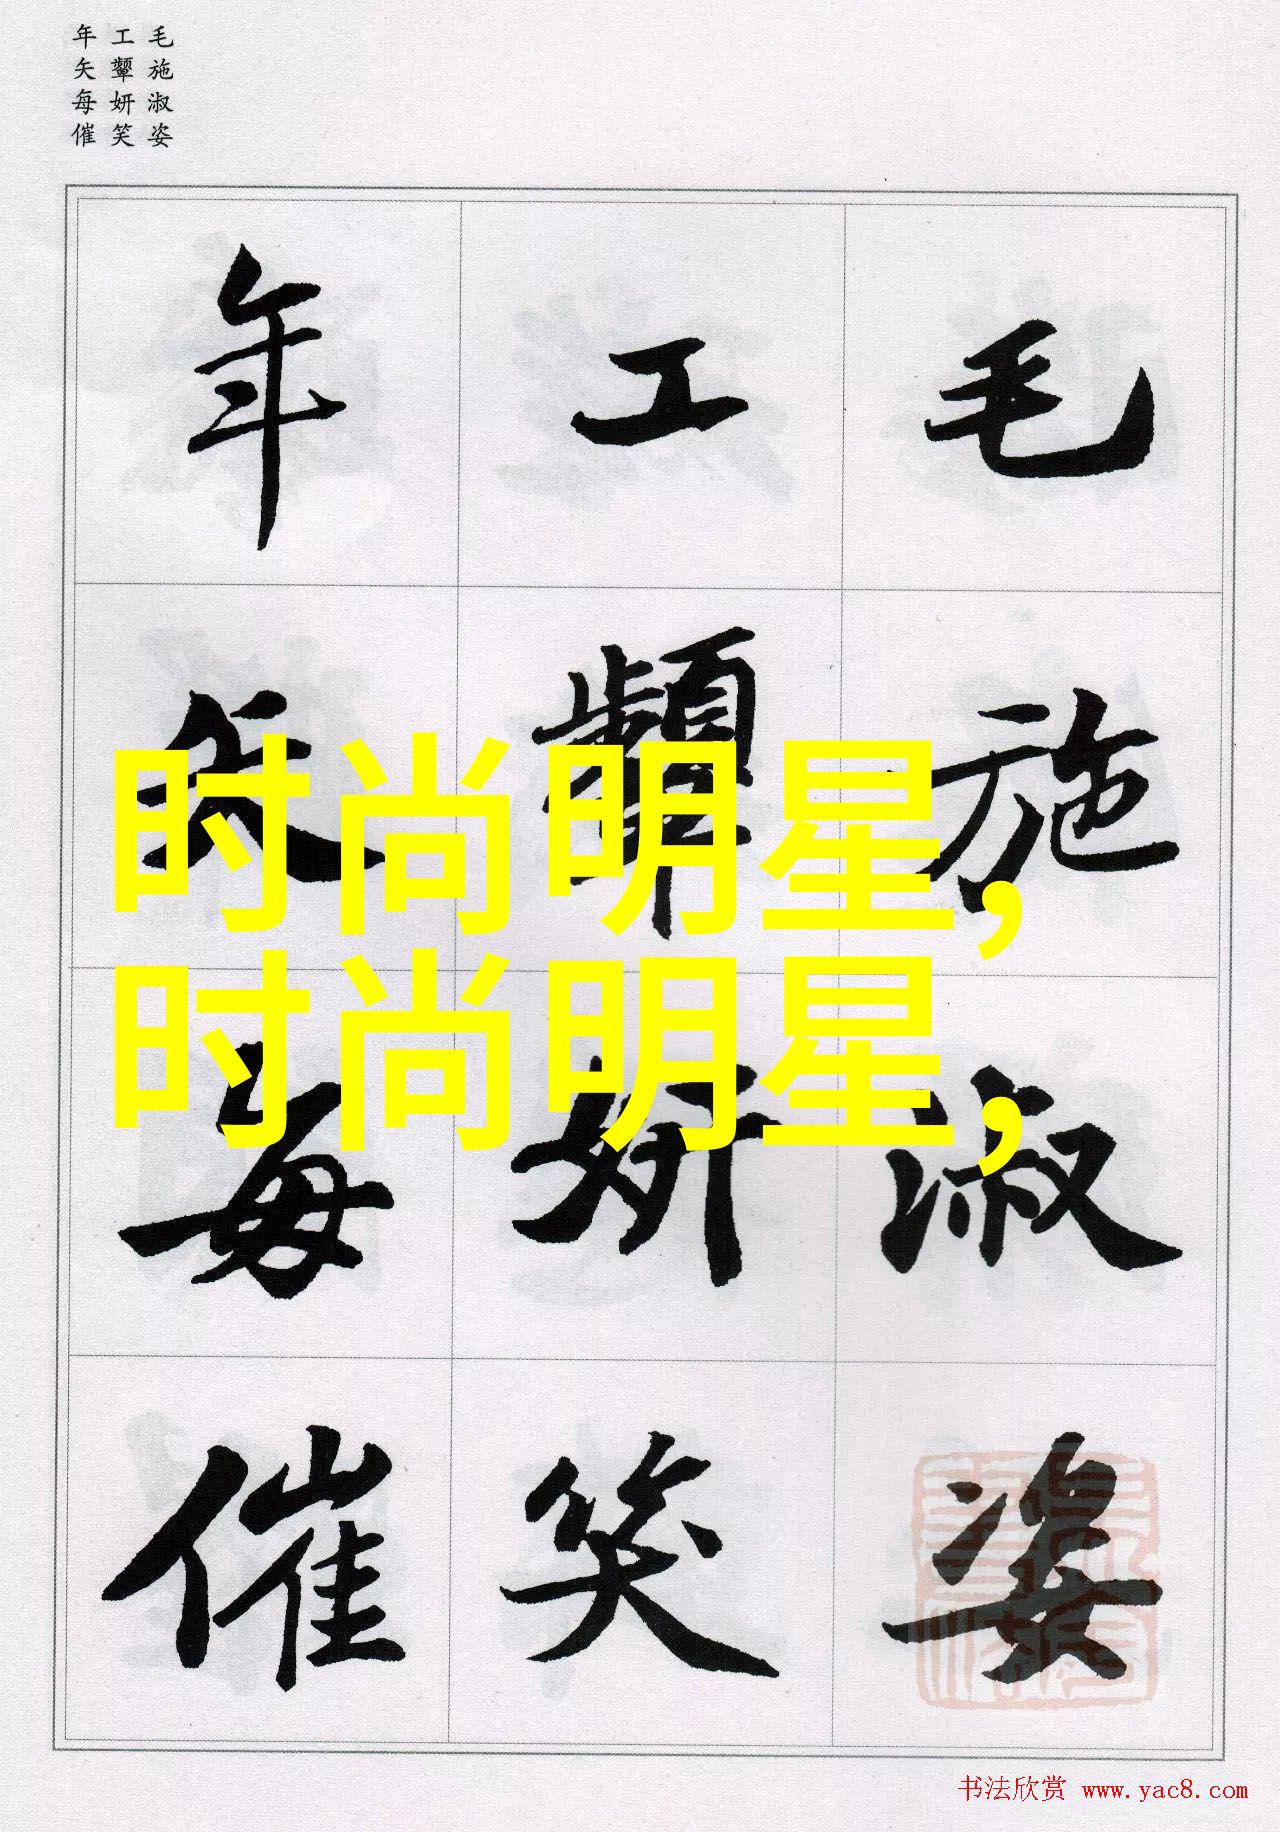 毛施淑姿
工颦妍笑
年矢每催
毛施淑姿
工颦妍笑
年矢每催
时尚明星,
时尚明星,
书法欣赏 www.yac8.com